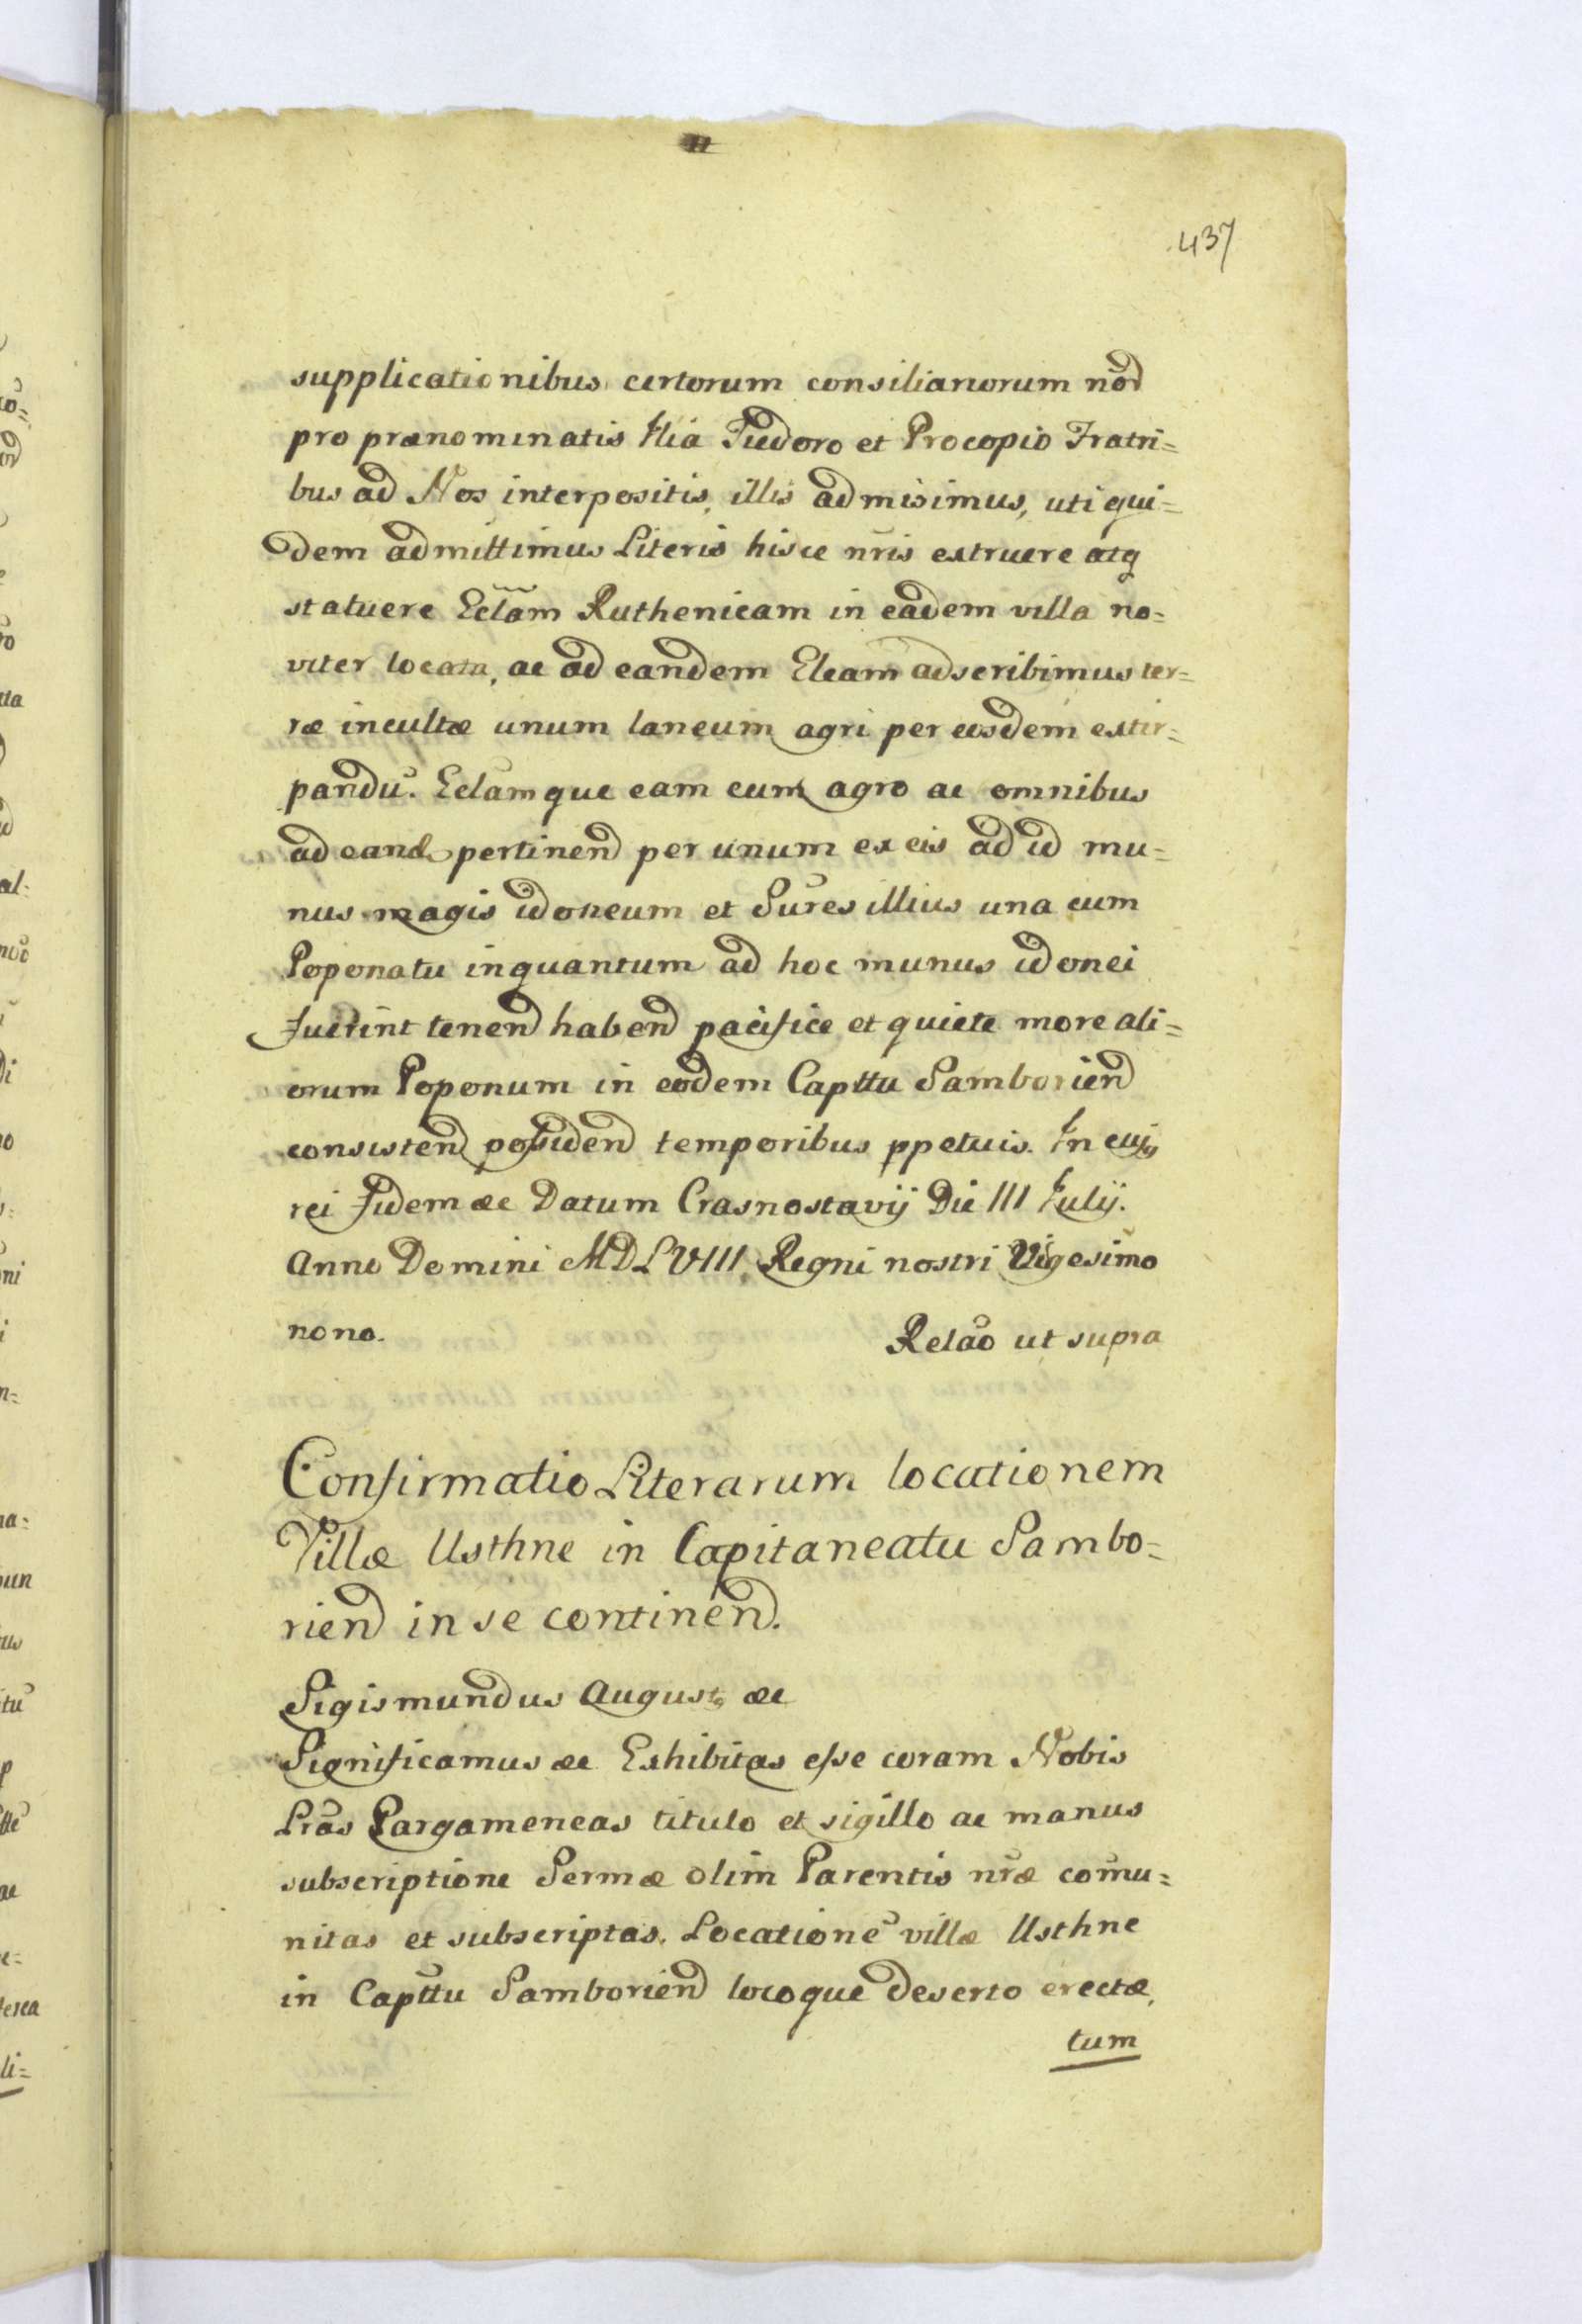 437
supplicationibus certorum consiliariorum nõrd
pro prænominatis Ilia Fiedoro et Procopio Fratri=
bus ad Nos interpositis, illis admisimus, uti qui=
dem admittimus Literis hisce nr̃is extruere atq
statuere Eclãm Ruthenicam in eadem villa no=
viter locata, ac ad eandem Elcam adscribimus ter=
ræ incultæ unum laneum agri per eosdem extir=
pandũ. Eclãmque eam cum agro ac omnibus
ad eand pertinend per unum ex eis ad id mu=
nus magis idoneum et Sũres illius una cum
Poponatu inquantum ad hoc munus idonei
fuerint tenend habend pacifice et quiete more ali=
orum Poponum in eodem Capttu Samboriend
consistend possidend temporibus ppetuis. In cujs
rei Fidem &c Datum Crasnostavij Die III Iulij.
Anno Domini MDLVIII. Regni nostri Vigesimo
nono.
Relão ut supra
Confirmatio Literarum locationem
Villæ Usthne in Capitaneatu Sambo=
riend in se continend.
Sigismundus August9 &c
Significamus &c Exhibitas esse coram Nobis
Lrãs Pargameneas titulo et sigillo ac manus
subscriptione Sermæ olim Parentis nr̃æ com̃u=
nitas et subscriptas. Locationẽ villæ Usthne
in Capttu Samboriend locoque deserto erectæ,
tum